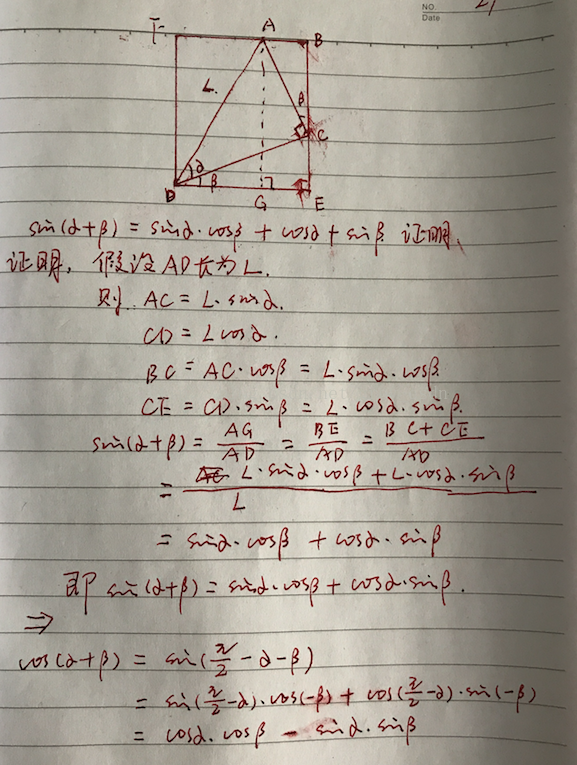 NO.
Date
F A B
L
β
C
α
D β G E
sin(α+β) = sinα·cosβ + cosα + sinβ 证明、
证明, 假设AD长为L.
则 AC = L·sinα.
CD = Lcosα.
BC = AC·cosβ = L·sinα·cosβ
CE = CD·sinβ = L·cosα·sinβ.
sin(α+β) = AG/AD = BE/AD = BC+CE/AD
= L·sinα·cosβ + L·cosα·sinβ / L
= sinα·cosβ + cosα·sinβ
即 sin(α+β) = sinα·cosβ + cosα·sinβ.
⇒
cos(α+β) = sin(π/2 - α - β)
= sin(π/2 - α)·cos(-β) + cos(π/2 - α)·sin(-β)
= cosα·cosβ - sinα·sinβ